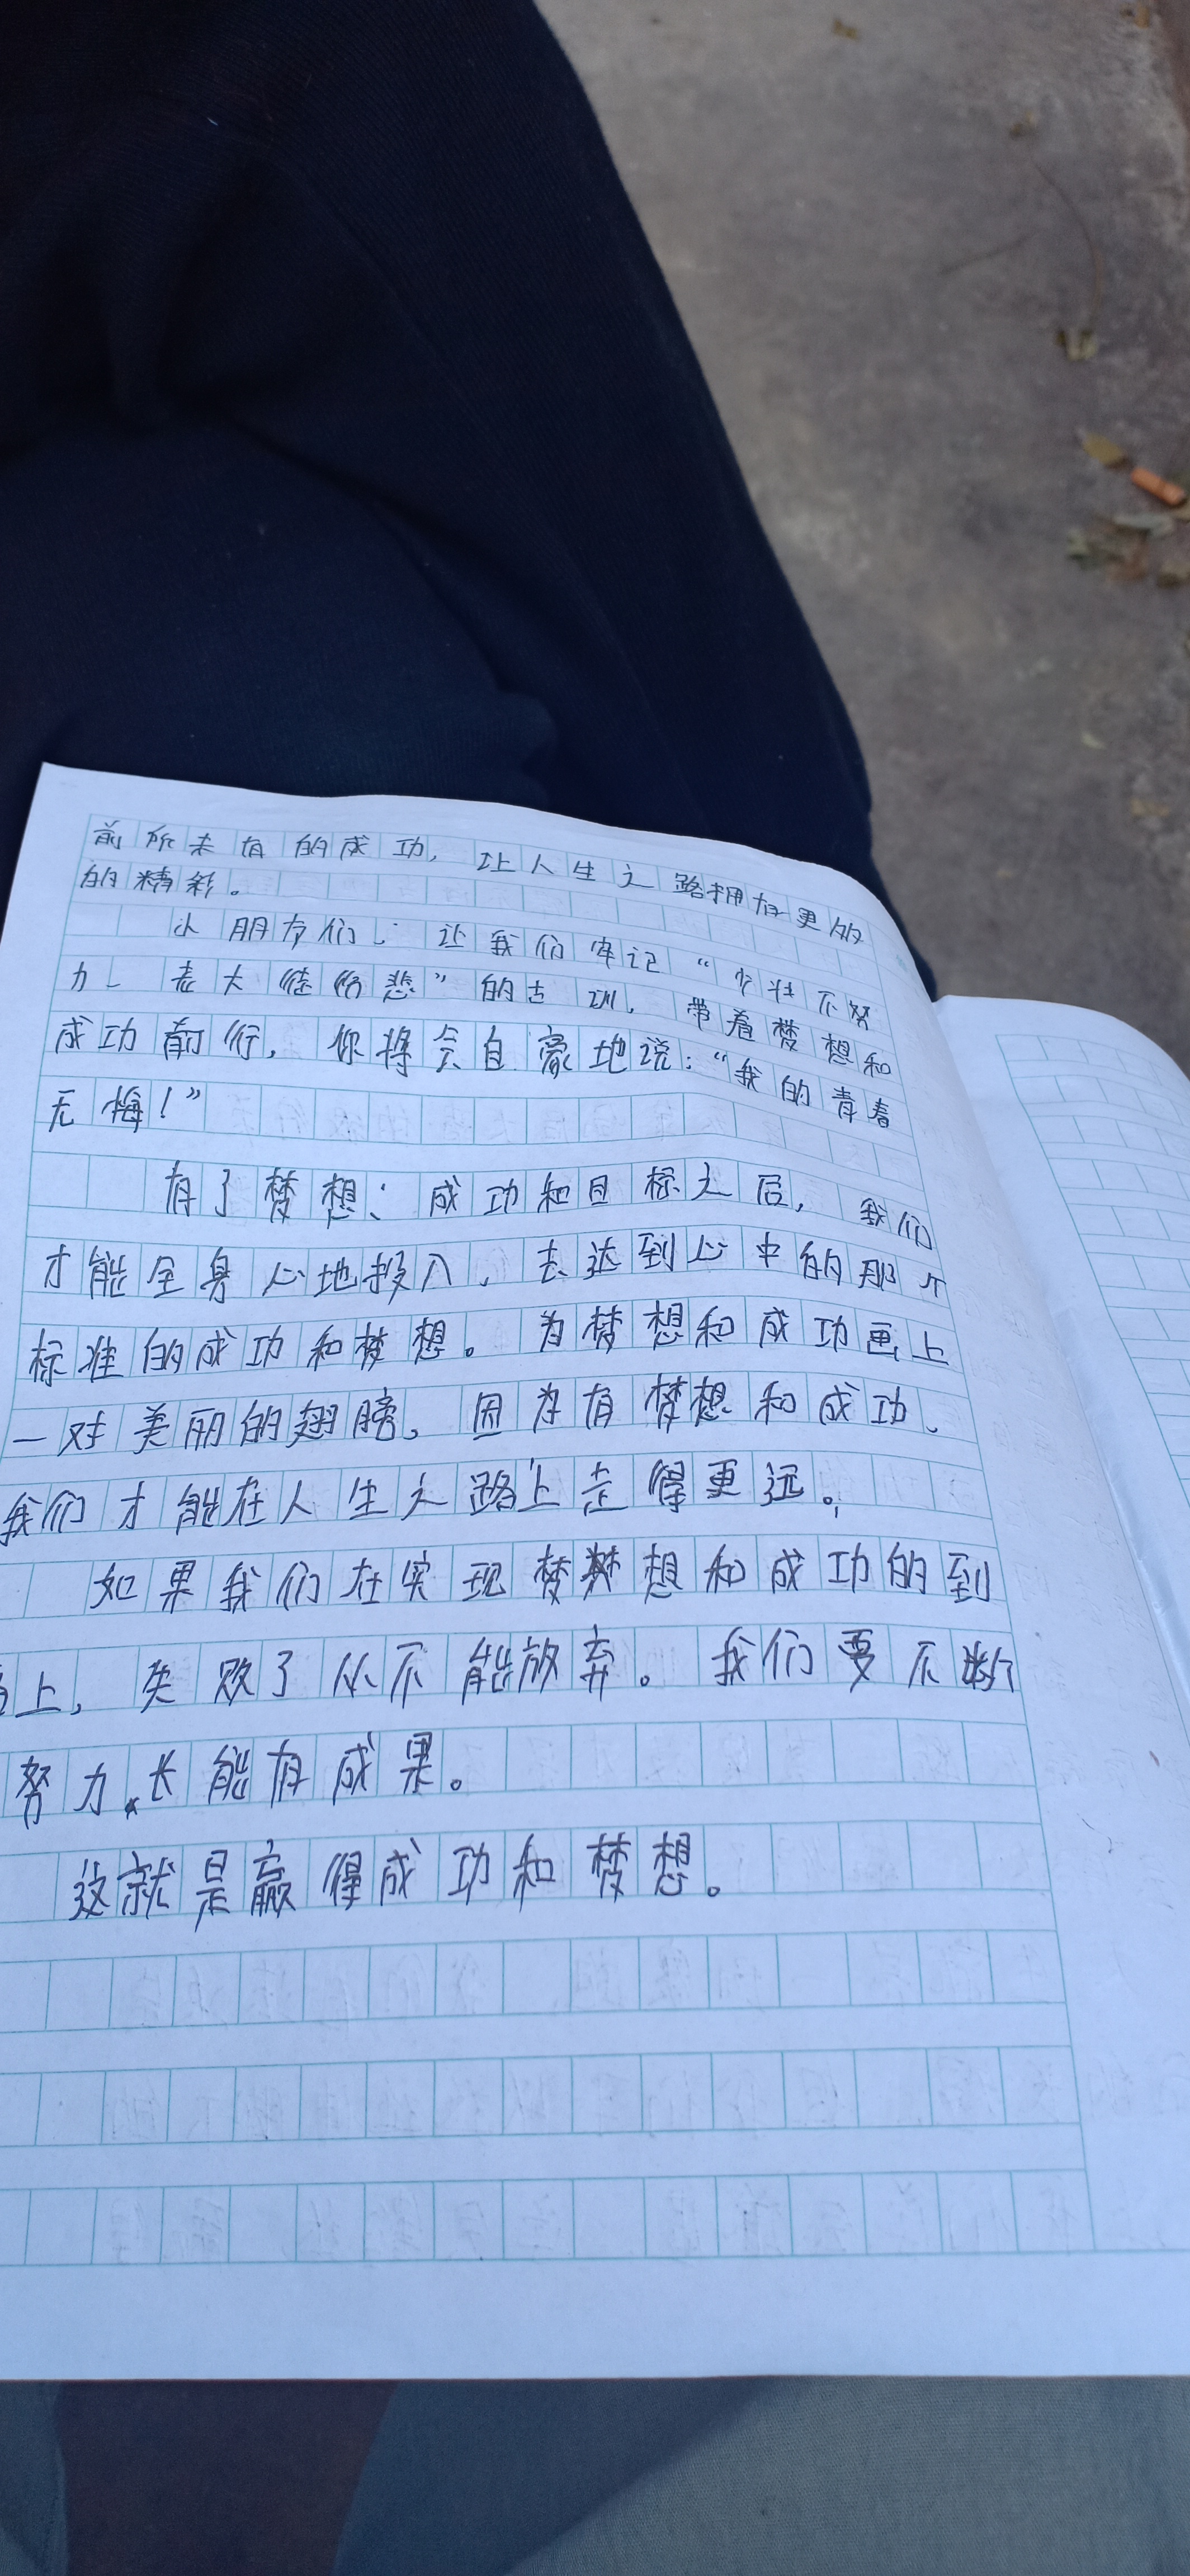 前所未有的成功，让人生之路拥有更多
的精彩。
小朋友们：让我们牢记“少壮不努
力、老大徒伤悲”的古训，带着梦想和
成功前行，你将会自豪地说：“我的青春
无悔！”
有了梦想、成功和目标之后，我们
才能全身心地投入，去达到心中的那个
标准的成功和梦想。为梦想和成功画上
一对美丽的翅膀。因为有梦想和成功、
我们才能在人生之路上走得更远。
如果我们在实现梦想和成功的到
上，失败了从不能放弃。我们要不断
努力，长能有成果。
这就是赢得成功和梦想。